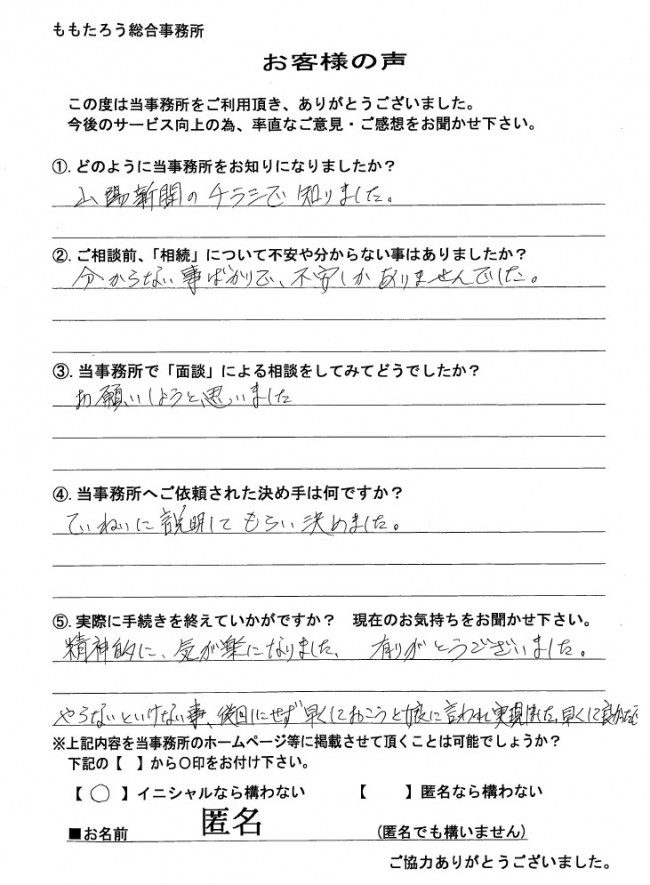 ももたろう総合事務所
お客様の声
この度は当事務所をご利用頂き、ありがとうございました。
今後のサービス向上の為、率直なご意見・ご感想をお聞かせ下さい。
①. どのように当事務所をお知りになりましたか？
山陽新聞のチラシで知りました。
②. ご相談前、「相続」について不安や分からない事はありましたか？
分からない事ばかりで、不安しかありませんでした。
③. 当事務所で「面談」による相談をしてみてどうでしたか？
お願いしようと思いました
④. 当事務所へご依頼された決め手は何ですか？
ていねいに説明してもらい決めました。
⑤. 実際に手続きを終えていかがですか？　現在のお気持ちをお聞かせ下さい。
精神的に、気が楽になりました、有りがとうございました。
やらないといけない事、後回しにせず早くしておこうと娘に言われ実現した。早くして良かった
※上記内容を当事務所のホームページ等に掲載させて頂くことは可能でしょうか？
下記の【　】から〇印をお付け下さい。
【 〇 】イニシャルなら構わない　　【　　】匿名なら構わない
■お名前　匿名　(匿名でも構いません)
ご協力ありがとうございました。